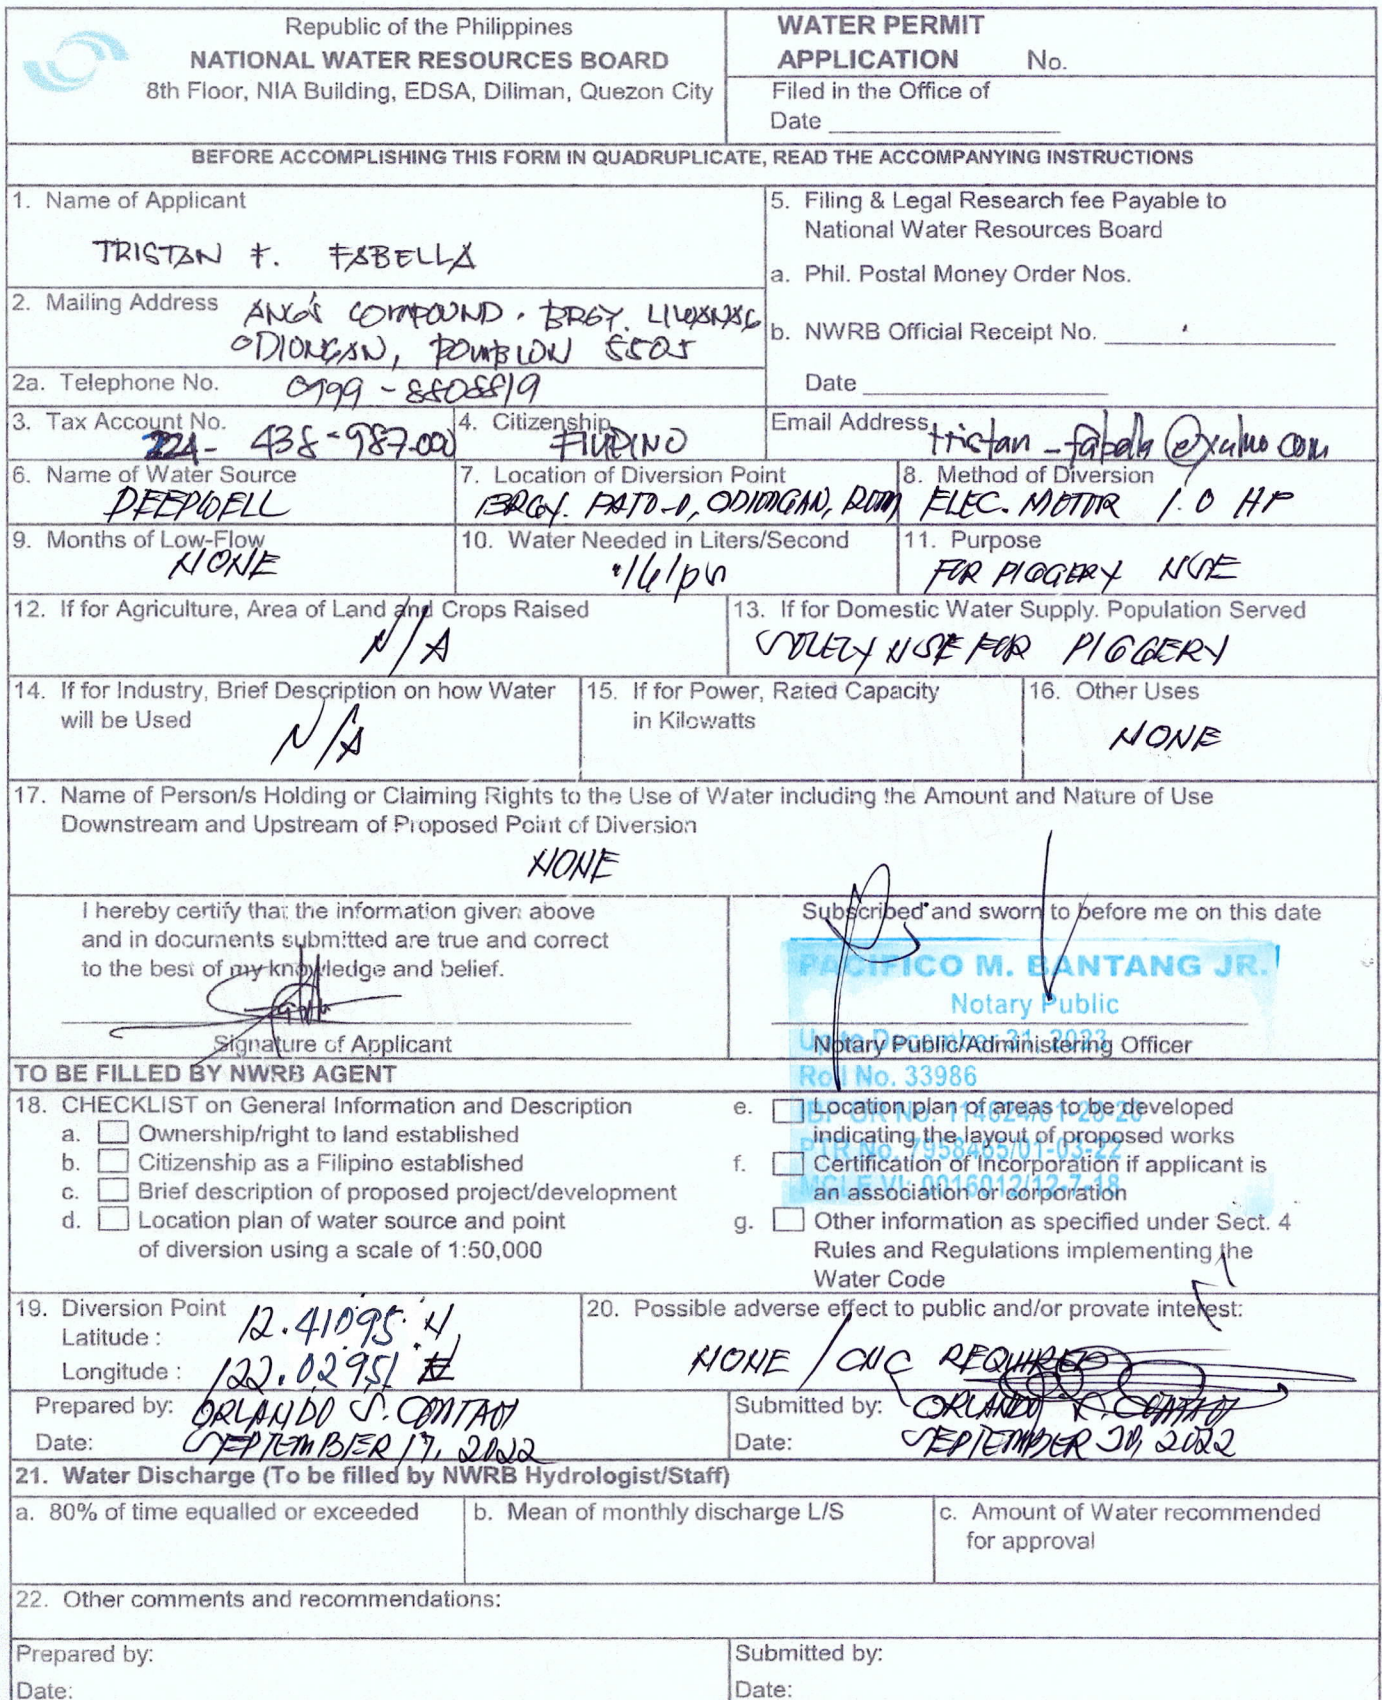 Republic of the Philippines
NATIONAL WATER RESOURCES BOARD
8th Floor, NIA Building, EDSA, Diliman, Quezon City
WATER PERMIT
APPLICATION No.
Filed in the Office of
Date
BEFORE ACCOMPLISHING THIS FORM IN QUADRUPLICATE, READ THE ACCOMPANYING INSTRUCTIONS
1. Name of Applicant
TRISTAN F. FABELLA
2. Mailing Address ANG'S COMPOUND. BRGY. LIWANAG
ODIONGAN, ROMBLON 5505
2a. Telephone No. 0999-8808819
5. Filing & Legal Research fee Payable to
National Water Resources Board
a. Phil. Postal Money Order Nos.
b. NWRB Official Receipt No.
Date
3. Tax Account No.
224- 438-987-000
4. Citizenship
FILIPINO
Email Address
6. Name of Water Source
DEEPWELL
7. Location of Diversion Point
BRGY. PATO-O, ODIONGAN, ROM
8. Method of Diversion
ELEC. MOTOR 1.0 HP
9. Months of Low-Flow
NONE
10. Water Needed in Liters/Second
11. Purpose
FOR PIGGERY USE
12. If for Agriculture, Area of Land and Crops Raised
N/A
13. If for Domestic Water Supply. Population Served
SOLELY USE FOR PIGGERY
14. If for Industry, Brief Description on how Water
will be Used
N/A
15. If for Power, Rated Capacity
in Kilowatts
16. Other Uses
NONE
17. Name of Person/s Holding or Claiming Rights to the Use of Water including the Amount and Nature of Use
Downstream and Upstream of Proposed Point of Diversion
NONE
I hereby certify that the information given above
and in documents submitted are true and correct
to the best of my knowledge and belief.
Signature of Applicant
Subscribed and sworn to before me on this date
PACIFICO M. BANTANG JR.
Notary Public
Up to December 31, 2023
Notary Public/Administering Officer
Roll No. 33986
IBP OR NO. 114624/01-26-20
PTR No. 7958465/01-03-22
MCLE VI: 0016012/12-7-18
TO BE FILLED BY NWRB AGENT
18. CHECKLIST on General Information and Description
a. Ownership/right to land established
b. Citizenship as a Filipino established
c. Brief description of proposed project/development
d. Location plan of water source and point
of diversion using a scale of 1:50,000
e. Location plan of areas to be developed
indicating the layout of proposed works
f. Certification of Incorporation if applicant is
an association or corporation
g. Other information as specified under Sect. 4
Rules and Regulations implementing the
Water Code
19. Diversion Point
Latitude : 12.41095 N
Longitude : 122.02951 E
20. Possible adverse effect to public and/or provate interest:
NONE / CNC REQUIRED
Prepared by: ORLANDO S.
Date: SEPTEMBER 17, 2022
Submitted by: ORLANDO S.
Date: SEPTEMBER 20, 2022
21. Water Discharge (To be filled by NWRB Hydrologist/Staff)
a. 80% of time equalled or exceeded
b. Mean of monthly discharge L/S
c. Amount of Water recommended
for approval
22. Other comments and recommendations:
Prepared by:
Date:
Submitted by:
Date: